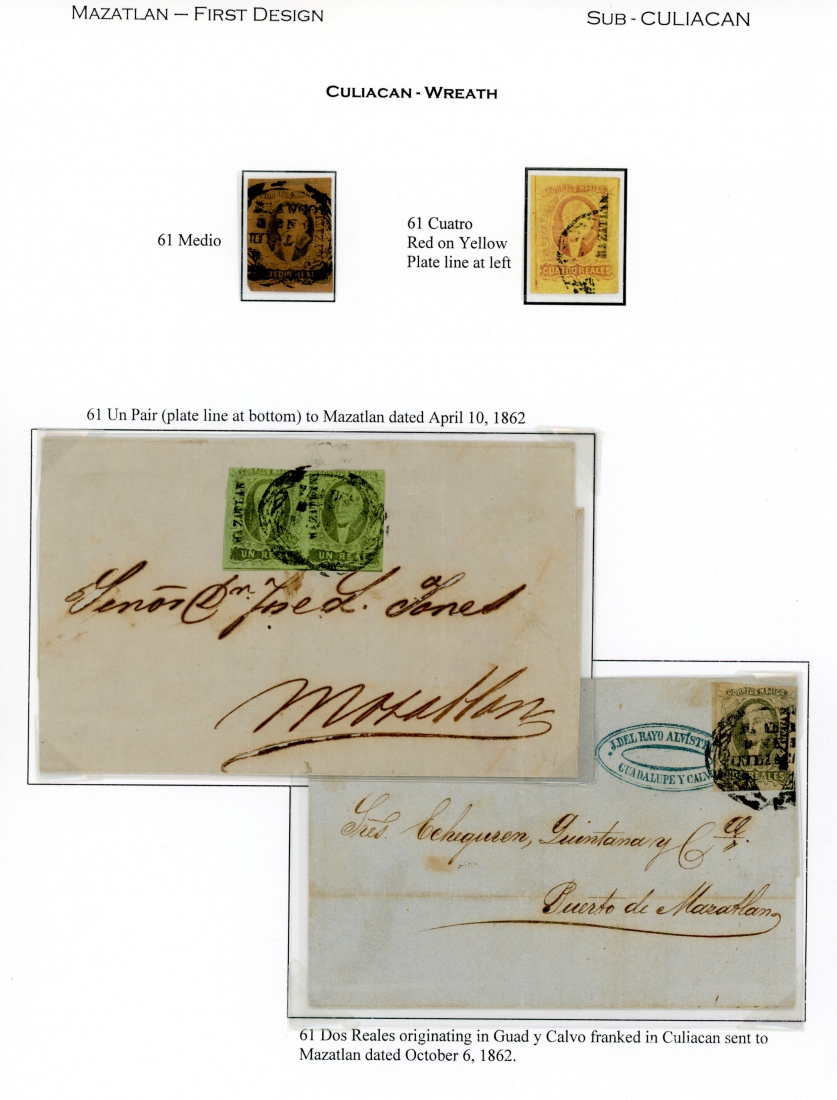 MAZATLAN – FIRST DESIGN
SUB - CULIACAN
CULIACAN - WREATH
61 Medio
61 Cuatro
Red on Yellow
Plate line at left
CORREOS MEJICO
CUATRO REALES
MAZATLAN
61 Un Pair (plate line at bottom) to Mazatlan dated April 10, 1862
CORREOS MEJICO
MAZATLAN
MAZATLAN
UN REAL
UN REAL
Señor Dn. Jose L. Jones
Mazatlan
CORREOS MEJICO
MAZATLAN
DOS REALES
J. DEL RAYO ALVISTE
GUADALUPE Y CALV
Sres. Echeguren, Quintana y Ca.
Puerto de Mazatlan
61 Dos Reales originating in Guad y Calvo franked in Culiacan sent to
Mazatlan dated October 6, 1862.